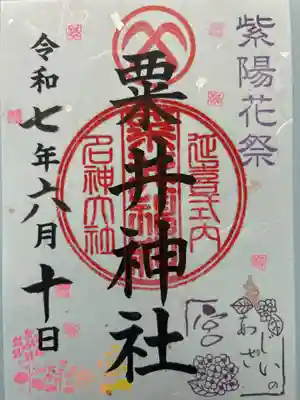 紫陽花祭
粟井神社
延喜式内
名神大社
令和七年六月十日